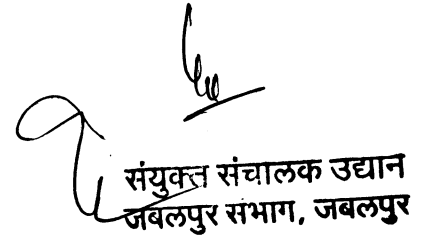 संयुक्त संचालक उद्यान
जबलपुर संभाग, जबलपुर